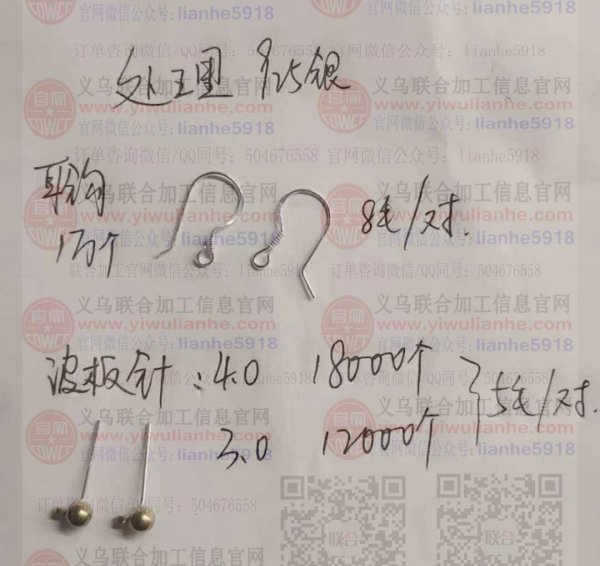 官网微信公众号：lianhe5918
订单咨询微信/QQ同号：504676558 官网微信公众号：lianhe5918
处理 925银
义乌联合加工信息官网
www.yiwulianhe.com
官网微信公众号：lianhe5918
订单咨询微信/QQ同号：504676558 官网微信公众号：lianhe5918
耳钩
1万个
8毛/对.
义乌联合加工信息官网
www.yiwulianhe.com
官网微信公众号：lianhe5918
订单咨询微信/QQ同号：504676558
义乌联合加工信息官网
www.yiwulianhe.com
官网微信公众号：lianhe5918
波板针：4.0 18000个
3.0 12000个
5毛/对.
义乌联合加工信息官网
www.yiwulianhe.com
官网微信公众号：lianhe5918
订单咨询微信/QQ同号：504676558
联合
义乌联合加工信息官网